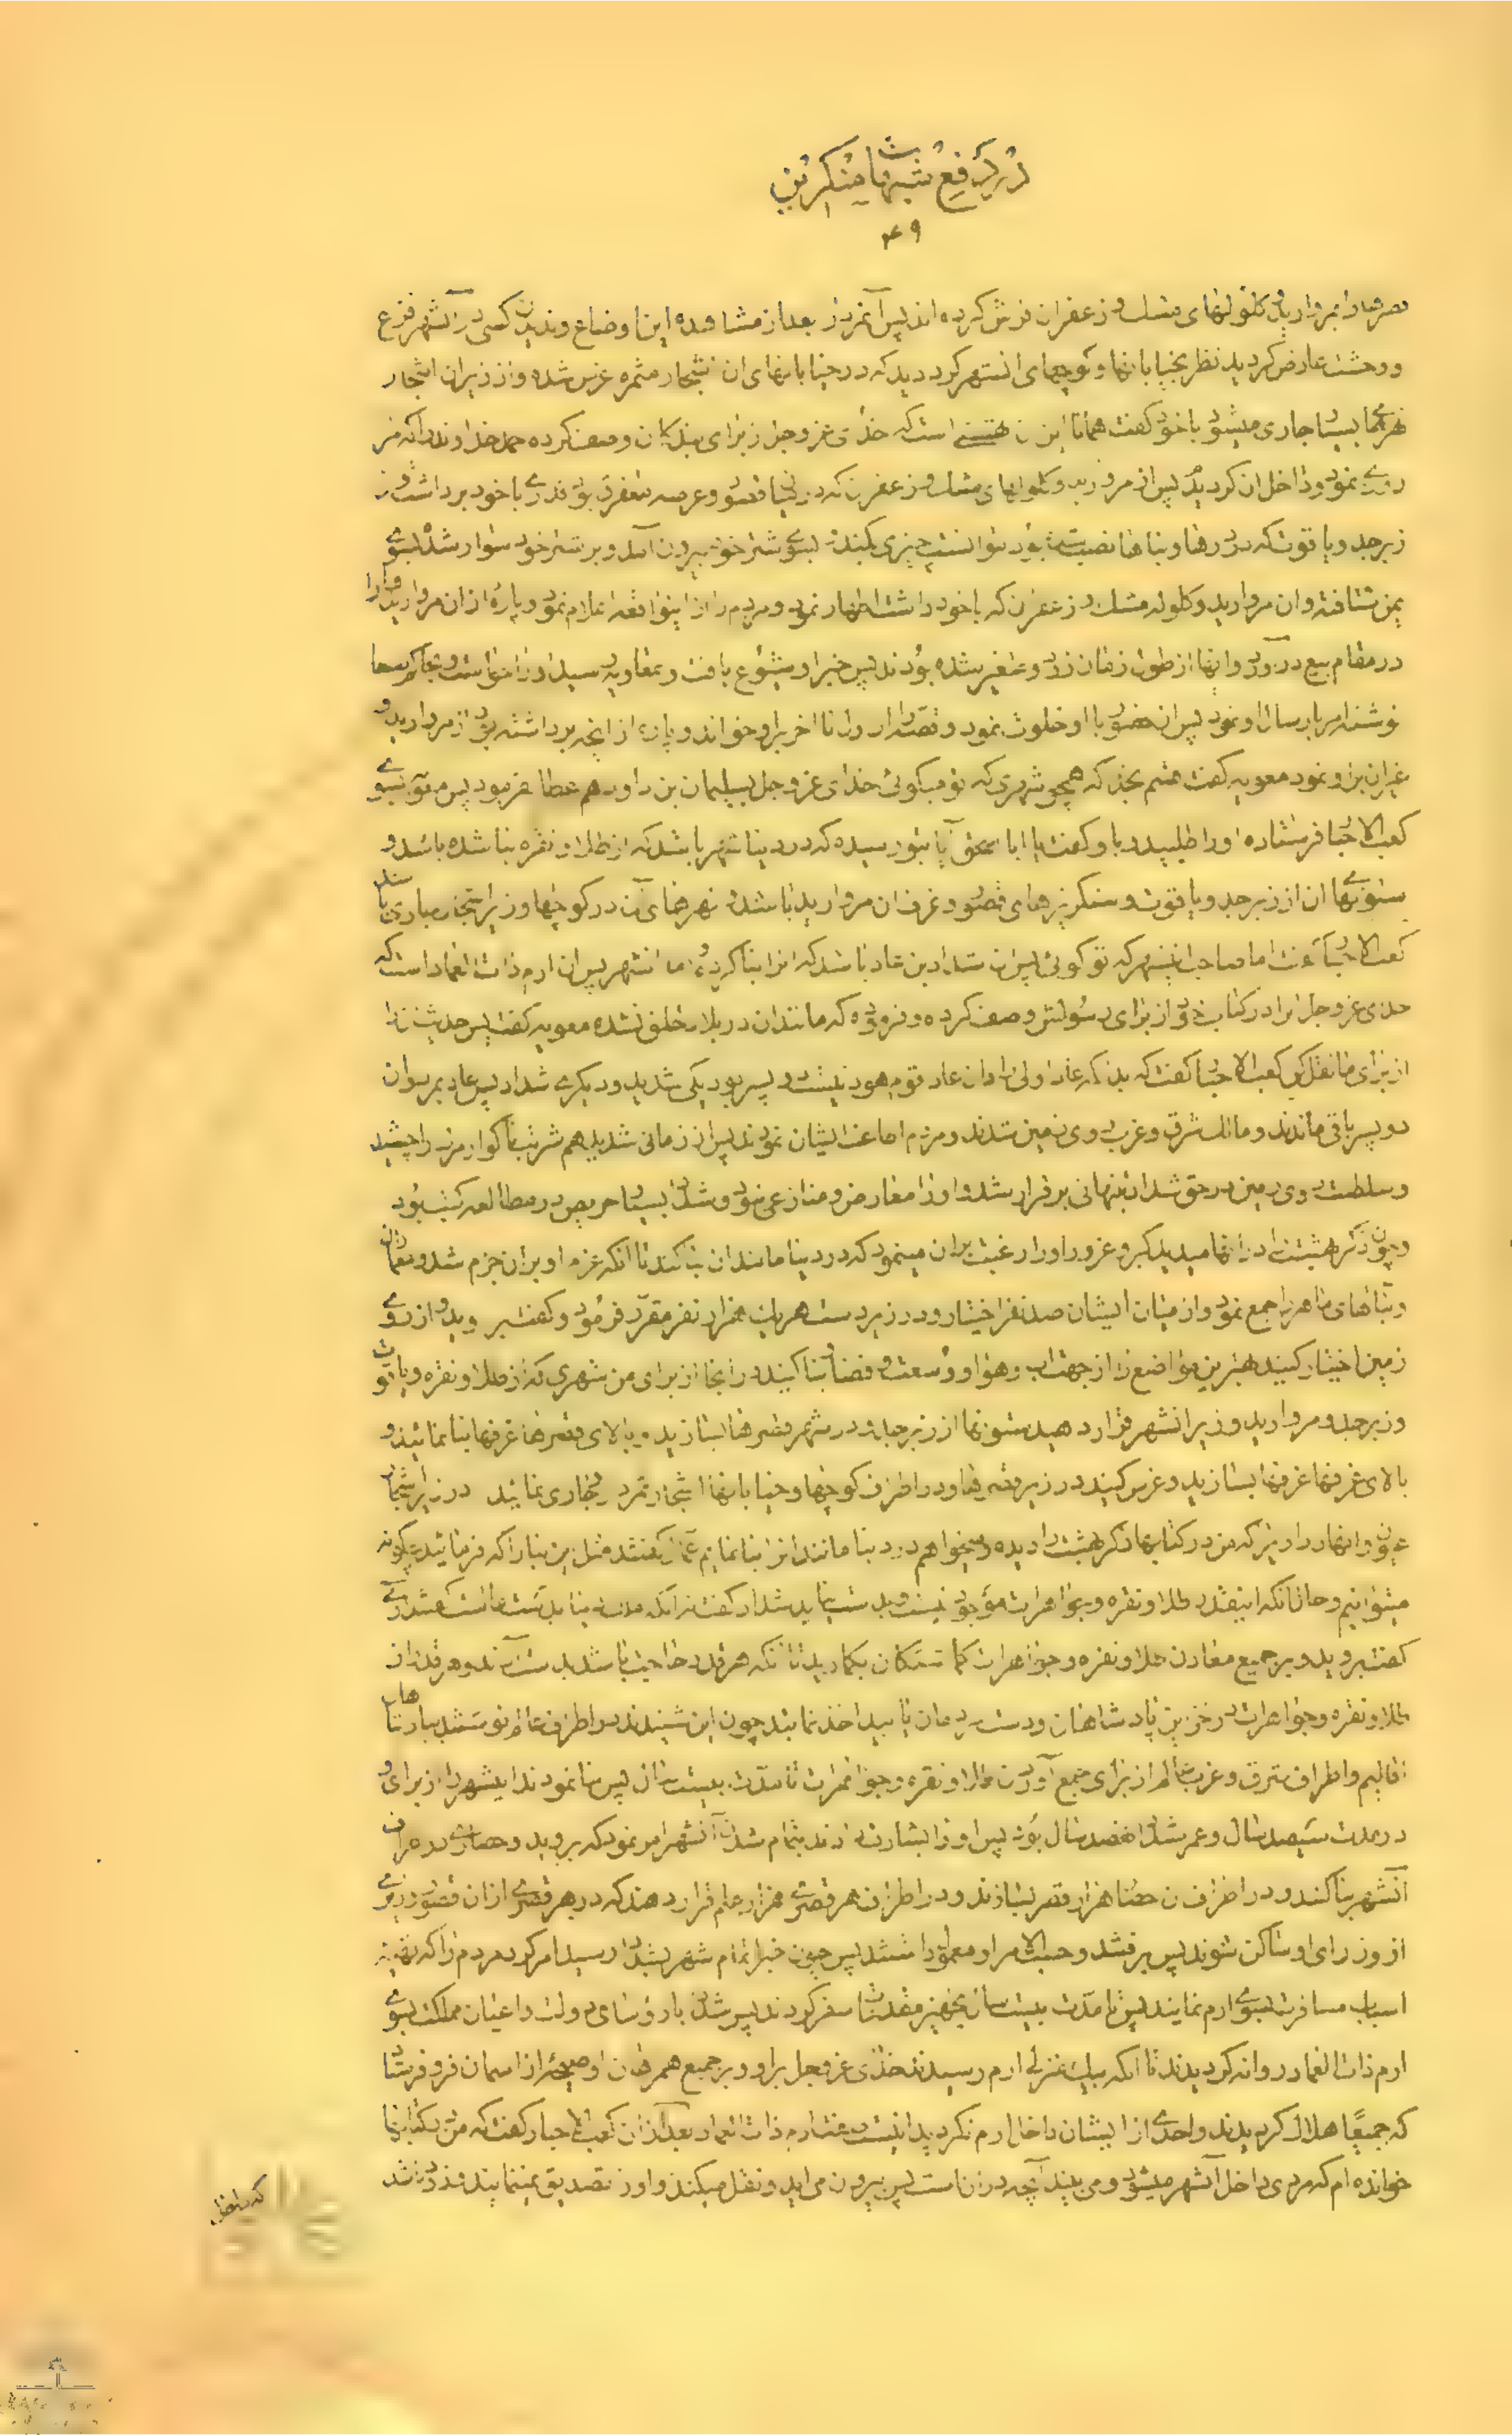 در رفع شبهات منکرین
۴۹
قصرها را بمروارید و کلولهای مشک و زعفران فرش کرده اند پس آنمرد از بعد از مشاهده این اوضاع و ندیدن کسی در آنشهر فزع
و وحشت عارض گردید نظر بخیابانها و کوچهای انشهر کرد دید که در خیابانهای ان اشجار مثمره غرس شده و از زیر ان اشجار
نهرها بسیار جاری میشود با خود گفت همانا این است که خدای عز و جل از برای بندکان وصف کرده حمد خداوند را که مر
روزی نمود و داخل ان گردید پس از مروارید و کلولهای مشک و زعفران که در قصور و عرصه متفرق بود قدری با خود برداشت و از
زبرجد و یاقوت که در درها و بناها نصب شده بود نتوانست چیزی بکند بسوی شتر خود بیرون آمد و بر شتر خود سوار شد بسوی
یمن شتافته و ان مروارید و کلوله مشک و زعفران که با خود داشت اظهار نمود و مردم را از اینواقعه اعلام نمود و پاره از ان مروارید را
در مقام بیع در آورد و انها از طول زمان زرد و متغیر شده بودند پس خبر او شیوع یافت و بمعاویه رسید او را خواست و بحاکم صنعا
نوشته امر بارسال او نمود پس از حضور با او خلوت نمود و قصه را از او تا اخر بر او خواند و پاره از انچه برداشته بود از مروارید و
غیر ان بر او نمود معویه گفت قسم بخدا که همچو شهری که تو میگوئی خدای عز و جل بسلیمان بن داود هم عطا نفرمود پس معویه بسوی
کعب الاحبار فرستاده او را طلبید و باو گفت یا ابا اسحق آیا بتو رسیده که در دنیا شهر باشد که از طلا و نقره بنا شده باشد و
ستونهای ان از زبرجد و یاقوت و سنکریزهای قصور و غرف ان مروارید باشد و نهرهای آن در کوچها و زیر اشجار جاری باشد
کعب الاحبار گفت اما صاحب اینشهر که تو کوئی پس ان شداد بن عاد باشد که انرا بنا کرده و اما انشهر پس ان ارم ذات العماد است که
خدای عز و جل انرا در کتاب خود از برای رسولش وصف کرده و فرموده که مانند ان در بلاد خلق نشده معویه گفت پس حدیث انرا
از برای ما نقل کن کعب الاحبار گفت که بدانکه عاد اولی و ان عاد قوم هود نیست دو پسر بود یکی شدید و دیگری شداد پس عاد بمرد و ان
دو پسر باقی ماندند و مالک شرق و غرب روی زمین شدند و مردم اطاعت ایشان نمودند پس از زمانی شدید هم شربت ناکوار مرک را چشید
و سلطنت روی زمین در حق شداد بتنهائی برقرار شد و او را معارض و منازعی نبود و شداد بسیار حریص در مطالعه کتب بود
و چون ذکر بهشت را در انها میدید کبر و غرور او را رغبت بران مینمود که در دنیا مانند ان بنا کند تا انکه عزم او بران جزم شد و معماران
و بناهای ماهر را جمع نمود و از میان ایشان صد نفر اختیار و در زیر دست هر یک هزار نفر مقرر فرمود و گفت بروید و از روی
زمین اختیار کنید بهترین مواضع را از جهت اب و هوا و وسعت و فضا و بنا کنید در انجا از برای من شهری که از طلا و نقره و یاقوت
و زبرجد و مروارید و زیر انشهر قرار دهید ستونها از زبرجد و در شهر قصرها بسازید و بالای قصرها غرفها بنا نمائید و
بالای غرفها غرفها بسازید و غرس کنید در زیر قصرها و در اطراف کوچها و خیابانها اشجار و نهر جاری نمائید در زیر اشجار
چون در انها زیرا که من در کتابها ذکر بهشت را دیده میخواهم در دنیا مانند انرا بنا نمایم گفتند مثل این بنا را که فرمائید چگونه
میتوانیم و حال انکه اینقدر طلا و نقره و جواهرات موجود نیست شداد گفت
گفت بروید و بر جمیع معادن طلا و نقره و جواهرات بکمارید تا انکه هر قدر حاجت باشد بدست آرند و هر قدر از
طلا و نقره و جواهرات در خزاین پادشاهان و دست مردمان یابید اخذ نمایند چون این شنیدند در اطراف عالم
اقالیم و اطراف شرق و غرب عالم از برای جمع آوردن طلا و نقره و جواهرات تا مدت بیست سال پس بنا نمودند اینشهر را از برای او
در مدت سیصد سال و عمر شداد نهصد سال بود پس او را بشارت دادند بتمام شدن آنشهر امر نمود که بروید و حصاری در
آنشهر بنا کنند و در اطراف ان حصار هزار قصر بسازند و در اطراف هر قصری هزار علم قرار دهند که در هر قصری از ان قصور وزیری
از وزرای او ساکن شوند پس برفتند و حسب الامر او معمول داشتند پس چون خبر اتمام شهر بشداد رسید امر کرد مردم را که تهیه
اسباب مسافرت بسوی ارم نمایند پس تا مدت بیست سال تجهیز مقدمات سفر کردند پس شداد با رؤسای دولت و اعیان مملکت بسوی
ارم ذات العماد روانه کردیدند تا انکه بیک منزلی ارم رسیدند خدای عز و جل بر او و بر جمیع همرهان او صیحهٔ از اسمان فرو فرستاد
که جمیعًا هلاک کردیدند و احدی از ایشان داخل ارم نکردید اینست صفت ارم ذات العماد بعد از ان کعب الاحبار گفت که من در کتابها
خوانده ام که مردی داخل آنشهر میشود و می بیند آنچه در ان است پس بیرون می اید و نقل میکند و او را تصدیق نمینمایند و زود باشد
که داخل